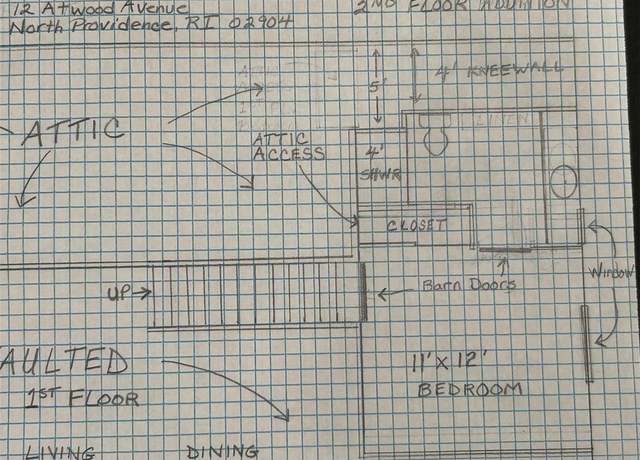 12 Atwood Avenue
North Providence, RI 02904
2ND FLOOR ADDITION
4' KNEEWALL
5'
ATTIC
ATTIC
ACCESS
LINEN
4'
SHWR
CLOSET
UP
Barn Doors
Window
VAULTED
1ST FLOOR
11' X 12'
BEDROOM
LIVING
DINING